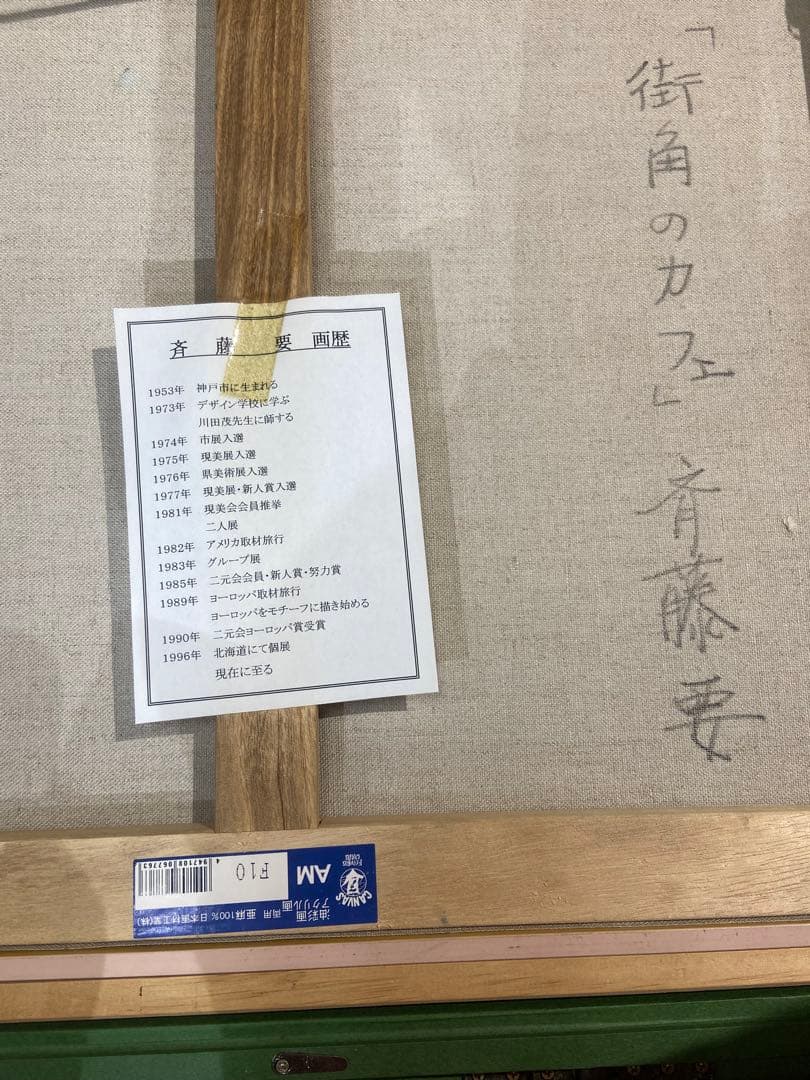 「街角のカフェ」 斉藤要
斉 藤 要 画歴
1953年 神戸市に生まれる
1973年 デザイン学校に学ぶ
川田茂先生に師する
1974年 市展入選
1975年 現美展入選
1976年 県美術展入選
1977年 現美展・新人賞入選
1981年 現美会会員推挙
二人展
1982年 アメリカ取材旅行
1983年 グループ展
1985年 二元会会員・新人賞・努力賞
1989年 ヨーロッパ取材旅行
ヨーロッパをモチーフに描き始める
1990年 二元会ヨーロッパ賞受賞
1996年 北海道にて個展
現在に至る
油彩画
アクリル画
両用 亜麻100% 日本画材工業(株)
CANVAS
AM
F10